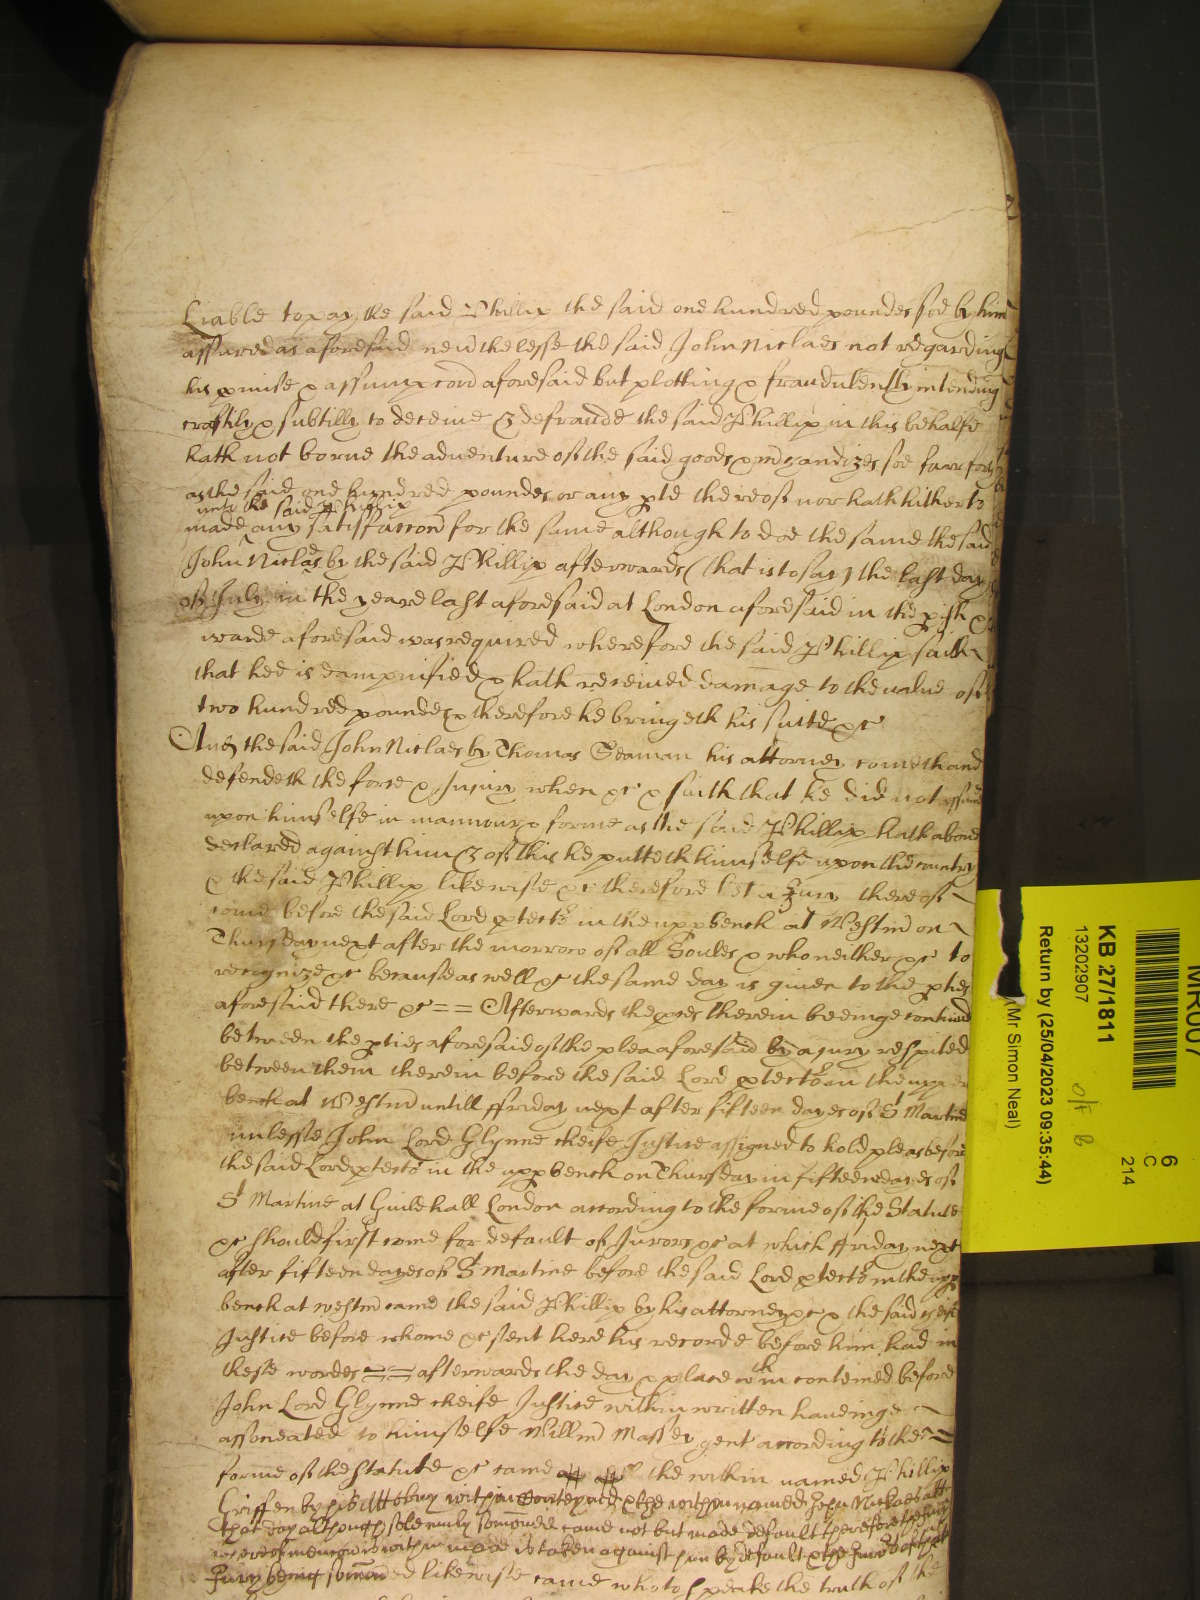 Liable to pay the said Phillip the said one hundred poundes soe by him
assured as aforesaid neverthelesse the said John Niclaes not regarding
his pmise & assumpcon aforesaid but plotting & fraudulently intending
craftily & subtilly to deceive & defraude the said Phillip in this behalfe
hath not borne the adventure of the said goods & mchandizes soe farr forth
as the said one hundred poundes or any pte thereof nor hath hitherto
unto the said Phillip
made any satisfaccon for the same although to doe the same the said
John Niclaes by the said Phillip afterwards (that is to say) the last day
of July in the yeare last aforesaid at London aforesaid in the pish &
warde aforesaid was required wherefore the said Phillip saith
that hee is dampnified & hath received damage to the value of
two hundred poundes & therefore he bringeth his suite &c
And the said John Niclaes by Thomas Seaman his attorney cometh and
defendeth the force & Injury when &c & saith that he did not assume
upon himselfe in mannour & forme as the said Phillip hath above
declared against him & of this he putteth himselfe upon the country
& the said Phillip likewise &c therefore let a Jury thereof
come before the said Lord ptector in the upp bench at Westm on
Thursday next after the morrow of all Soules & who neither &c to
recognize &c because as well &c the same day is given to the pties
aforesaid there &c == Afterwards the pces therein beeinge continued
betweene the pties aforesaid of the plea aforesaid by a jury respited
betweene them therein before the said Lord ptector in the upper
bench at Westm untill ffriday next after fifteen dayes of St Martine
unlesse John Lord Glynne cheife Justice assigned to hold pleas before
the said Lord ptector in the upp bench on Thursday in fifteene dayes of
St Martine at Guildhall London according to the forme of the Statute
&c should first come for default of Jurors &c at which ffriday next
after fifteen dayes of St Martine before the said Lord ptector in the upp
bench at westm came the said Phillip by his attorney &c & the said cheife
Justice before whome &c sent here his recorde before him had in
these wordes == afterwards the day & place wthin conteined before
John Lord Glynne cheife Justice within written haveinge
associated to himselfe Willm Massey gent according to the
forme of the Statute &c came the within named Phillip
Griffen by his Attorny within conteyned & the within named John Nicklaes att
that day although solemnly somoned came not but made default therefore the Jury
whereof mencon is within made is taken against him by default & the Jurors of that
Jury being somoned likewise came who to speake the truth of the
MR007
KB 27/1811
13202907
Return by (25/04/2023 09:35:44)
(Mr Simon Neal)
6
C
214